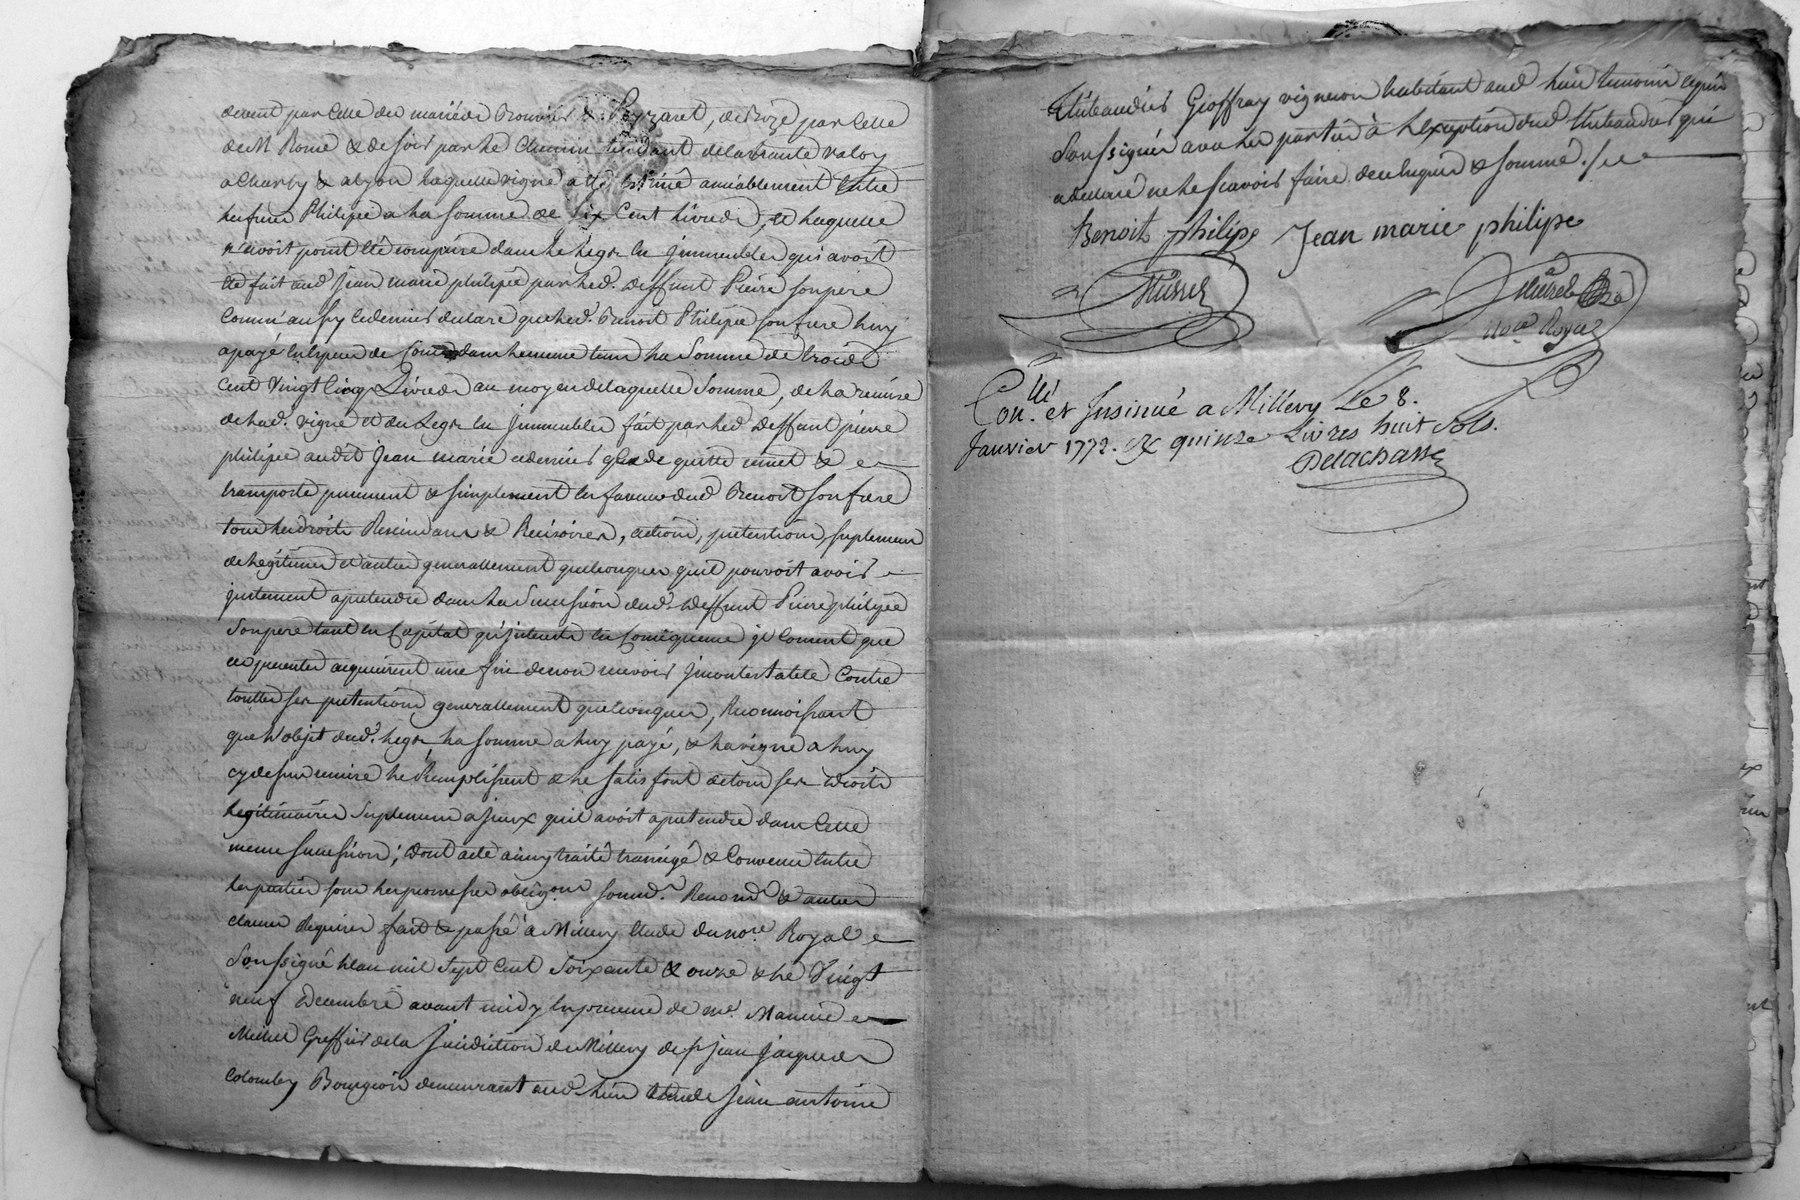 devent par celle de mariéde Bouvier & Peyzaret, de Bize par celle
de M Rome & de soir par le Chemin tendant de la Trante valoy
a Charly & a lyon laquelle vigne a été estimée amiablement entre
les freres Philipe a la somme de six Cent livres, et laquelle
n'avoit point été comprise dans le legs en jmmeubles qui avoit
été fait aud. Jean marie philipe par led. deffunt Pierre son pere
comm'aussy ce dernier declare que led. Benoit Philipe son frere luy
a payé en especes de cours dans le meme tems la somme de trois
cent vingt cinq Livres au moyen de laquelle somme, de la remise
de lad. vigne et du legs en jmmeubles fait par led deffunt pierre
philipe audit Jean marie ce dernier quitte remet &
transporte purement & simplement en faveur dud Benoit son frere
tous les droits Rescindans & Rescisoires, actions, pretentions, suplement
de legitimes et autres generallement quelconques qu'il pouvoit avoir
justement a pretendre dans la Succession dud. deffunt Pierre philipe
son pere tant en Capital qu'jnterests en Consequence jl consent que
ces presentes acquierent une fin de non recevoir jncontestable Contre
touttes ses pretentions generallement quelconques, Reconnoissant
que l'objet dud. legs, la somme a luy payé, & la vigne a luy
cy dessus remise le Remplissent & le satisfont de tous ses droits
legitimaires suplement a jceux qu'il avoit a pretendre dans Cette
meme succession; dont acte ainsy traité transigé & Convenu entre
les parties sous les promesses obligons. soumd. Renond & autres
clauses Requises fait & passé à Millery Etude du nore Royal
soussigné l'an mil sept cent soixante & onze & le Vingt
neuf decembre avant midy en presence de me. Maurice
Michel Greffier de la Jurisdiction de Millery de sr Jean Jacques
Colomby Bourgeois demeurant aud. lieu & de Jean antoine
Thibaudier Geoffray vigneron habitant aud lieu temoins requis
soussignés avec les parties à l'exception dud Thibaudier qui
a declaré ne le scavoir faire de ce requis & sommé.
Benoit philipe Jean marie philipe
Mussel
nore Royal
Con.llé et Insinué a Millery Le 8.
Janvier 1772. Rx quinze Livres huit sols.
Delachasse